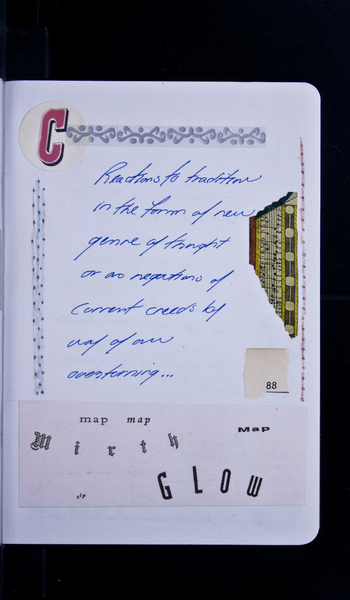 C
Reactions to tradition
in the form of new
genre of thought
or as negations of
current creeds by
way of our
overturning...
88
map map Map
Mirth
GLOW